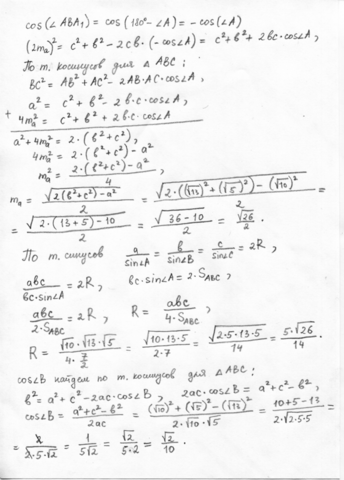 cos(∠ABA₁) = cos(180°-∠A) = -cos(∠A)
(2mₐ)² = c² + b² - 2cb·(-cos∠A) = c² + b² + 2bc·cos∠A,
По т. косинусов для △ABC:
BC² = AB² + AC² - 2AB·AC·cos∠A,
a² = c² + b² - 2b·c·cos∠A,
+ 4mₐ² = c² + b² + 2b·c·cos∠A
a² + 4mₐ² = 2·(b² + c²),
4mₐ² = 2·(b² + c²) - a²
mₐ² = (2·(b² + c²) - a²)/4,
mₐ = √(2(b² + c²) - a²)/2 = √(2·((√13)² + (√5)²) - (√10)²)/2 =
= √(2·(13+5) - 10)/2 = √(36-10)/2 = √26/2.
По т. синусов a/sin∠A = b/sin∠B = c/sin∠C = 2R,
abc/(bc·sin∠A) = 2R, bc·sin∠A = 2·S_ABC,
abc/(2·S_ABC) = 2R, R = abc/(4·S_ABC),
R = (√10·√13·√5)/(4·7/2) = √(10·13·5)/(2·7) = √(2·5·13·5)/14 = 5·√26/14.
cos∠B найдем по т. косинусов для △ABC:
b² = a² + c² - 2ac·cos∠B, 2ac·cos∠B = a² + c² - b²,
cos∠B = (a² + c² - b²)/2ac = ((√10)² + (√5)² - (√13)²)/(2·√10·√5) = (10+5-13)/(2√(2·5·5)) =
= 2/(2·5·√2) = 1/(5√2) = √2/(5·2) = √2/10.